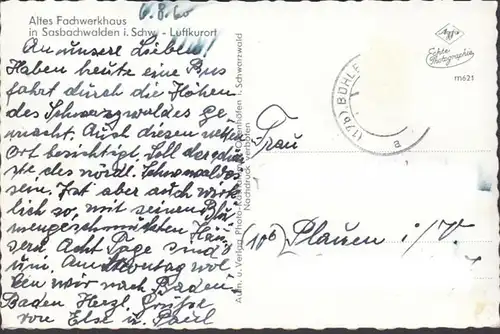 6.8.60
Altes Fachwerkhaus
in Sasbachwalden i. Schw. - Luftkurort
An unsere Lieben!
Haben heute eine Bus
fahrt durch die Höhen
des Schwarzwaldes ge
macht. Auch diesen netten
Ort besichtigt. Soll der schön
ste des nördl. Schwarzwaldes
sein. Ist aber auch wirk
lich so, mit seinen Blu
mengeschmückten Häu
sern. Acht Tage sind
um. Am Montag wol
len wir nach Baden
Baden. Herzl. Grüße
von Else u. Paul
Aufn. u. Verlag: Photo- Gutenhofen i. Schwarzwald
Nachdruck verboten
Agfa
Echte
Photographie
m621
(17b) BÜHLE
a
Frau
(10b) Plauen i/V.